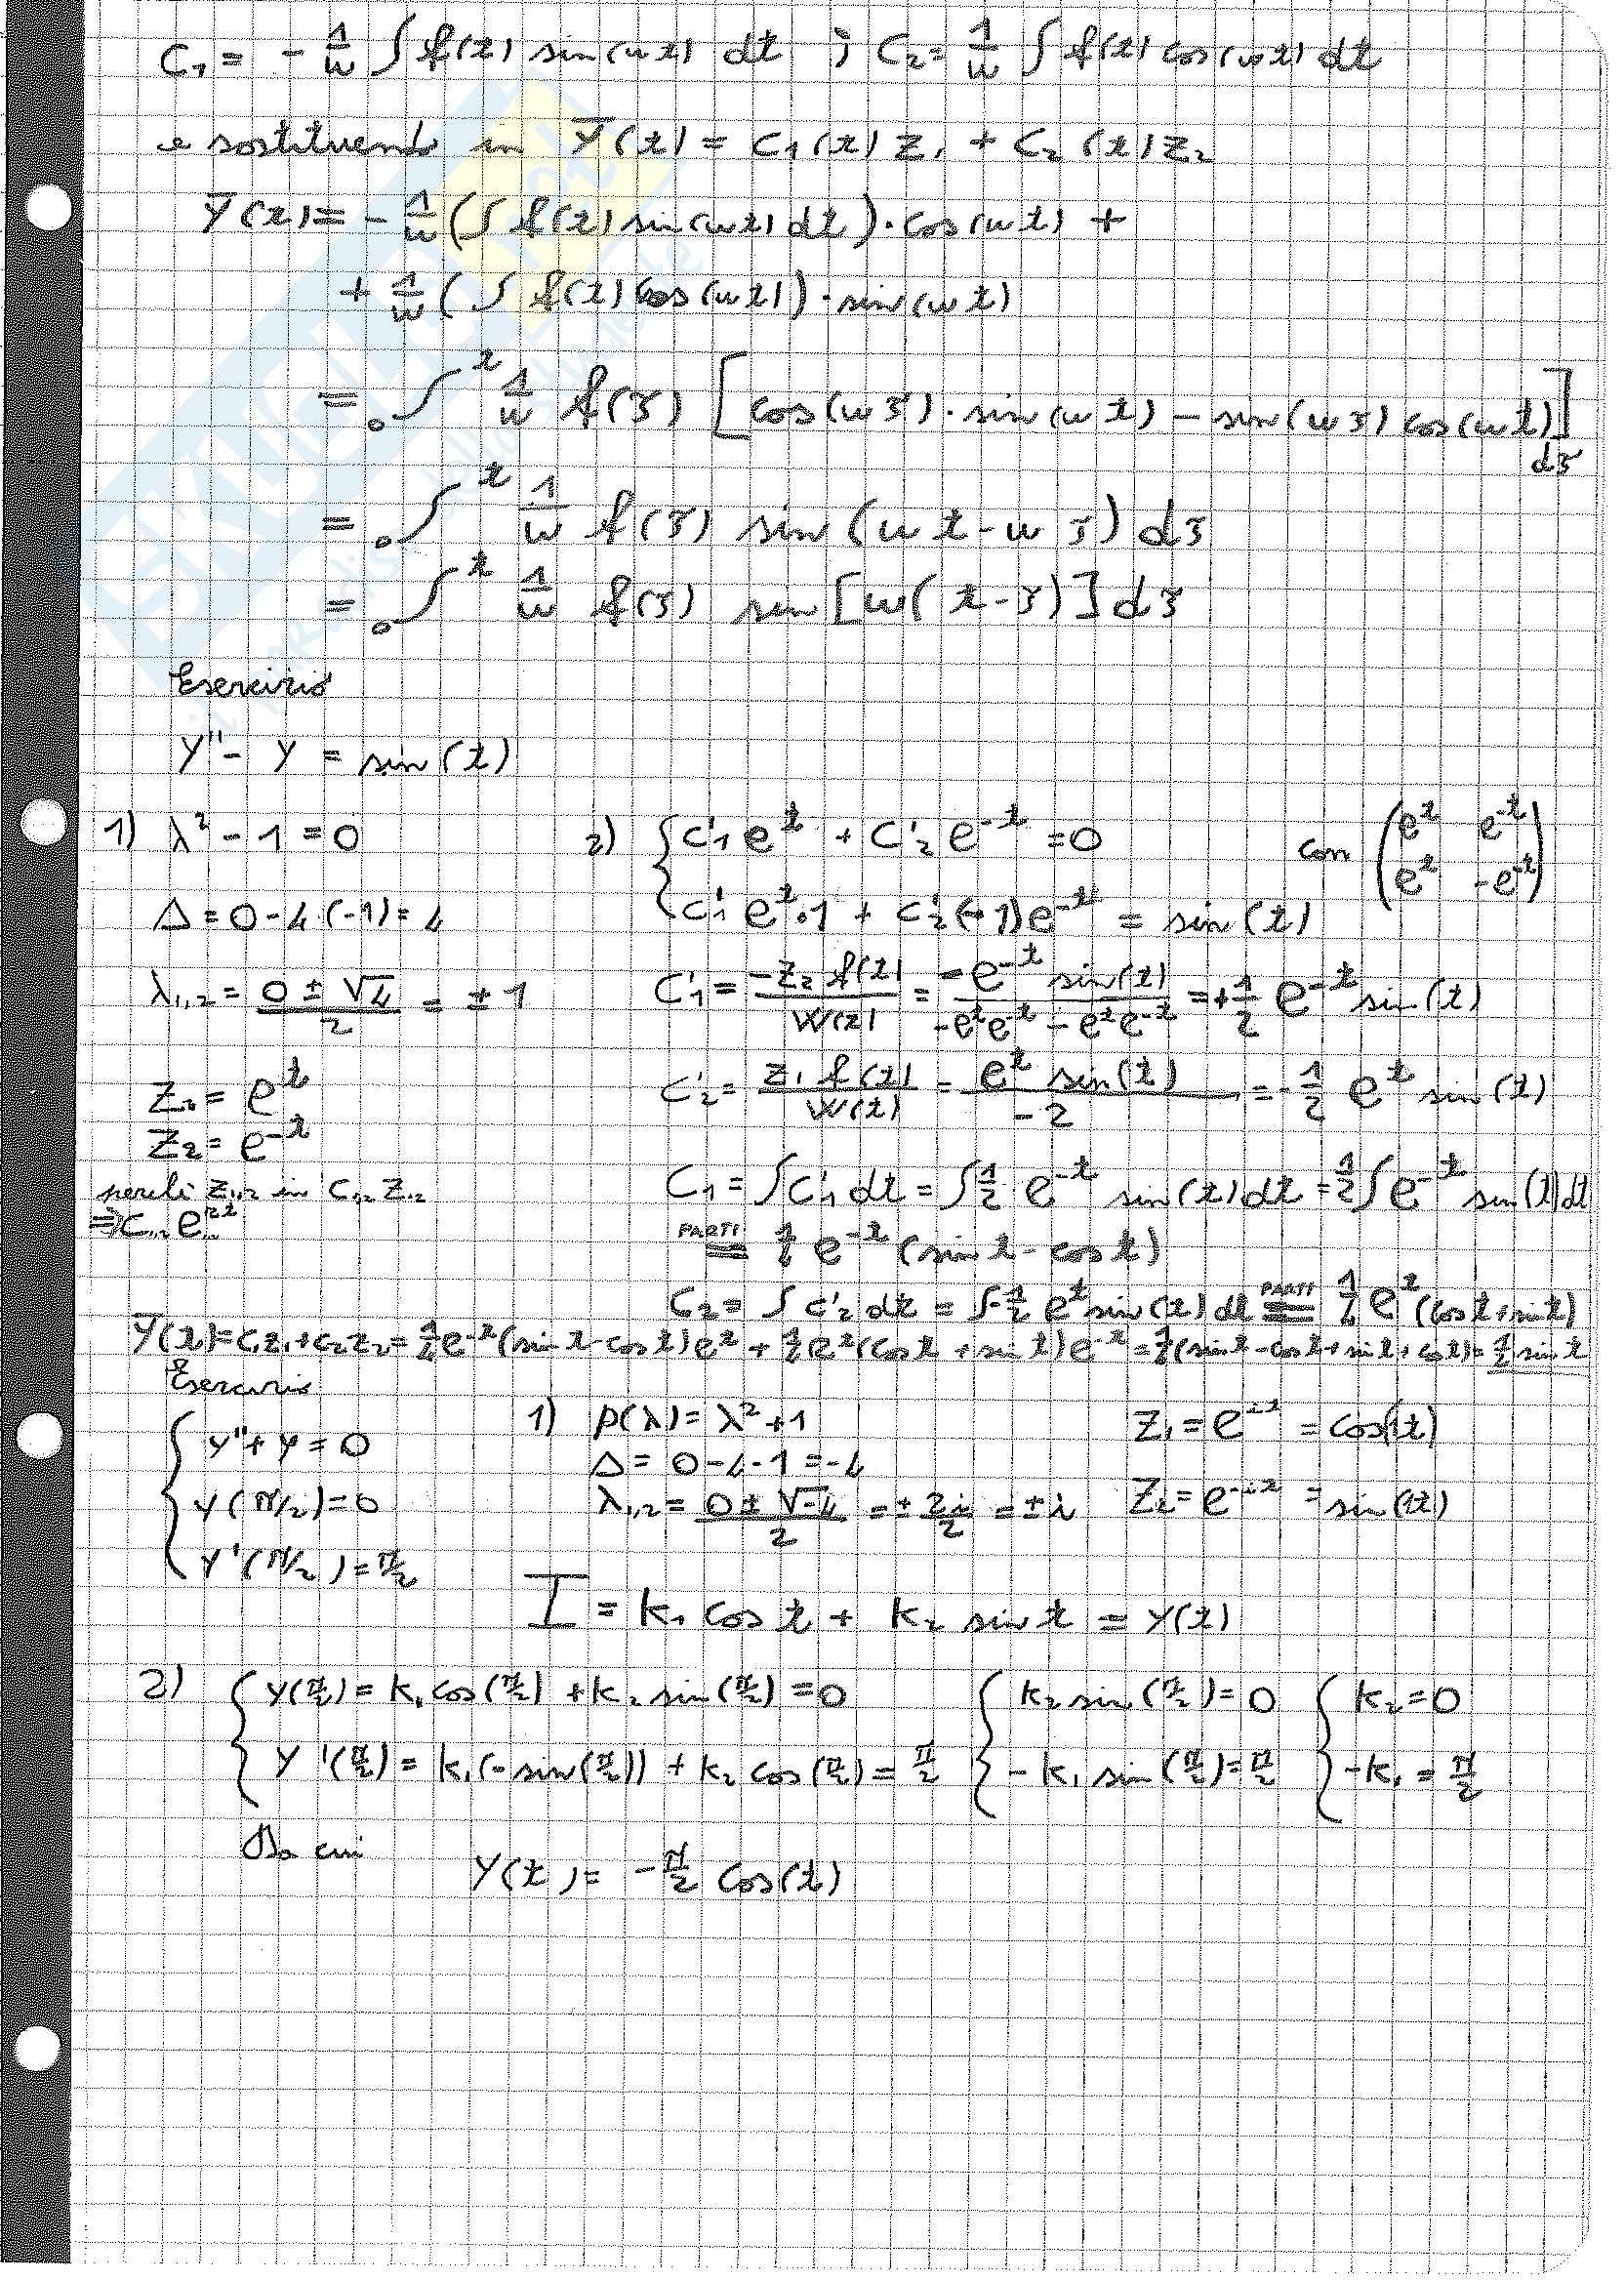 C₁ = - 1/w ∫ f(t) sin(wt) dt ; C₂ = 1/w ∫ f(t) cos(wt) dt
e sostituendo in Y̅(t) = C₁(t) Z₁ + C₂(t) Z₂
Y̅(t) = - 1/w (∫ f(t) sin(wt) dt) · cos(wt) +
+ 1/w (∫ f(t) cos(wt)) · sin(wt)
= ₀∫ᵗ 1/w f(ζ) [cos(wζ) · sin(wt) - sin(wζ) cos(wt)] dζ
= ₀∫ᵗ 1/w f(ζ) sin(wt - wζ) dζ
= ₀∫ᵗ 1/w f(ζ) sin[w(t-ζ)] dζ
Esercizio
Y'' - Y = sin(t)
1) λ² - 1 = 0
Δ = 0 - 4·(-1) = 4
λ₁,₂ = (0 ± √4)/2 = ± 1
Z₁ = eᵗ
Z₂ = e⁻ᵗ
Z₁,₂ in C₁,₂ Z₁,₂
2) { C'₁ eᵗ + C'₂ e⁻ᵗ = 0
C'₁ eᵗ·1 + C'₂(-1)e⁻ᵗ = sin(t)
con (eᵗ e⁻ᵗ
eᵗ -e⁻ᵗ)
C'₁ = -Z₂ f(t) / W(t) = -e⁻ᵗ sin(t) / (-eᵗe⁻ᵗ - eᵗe⁻ᵗ) = + 1/2 e⁻ᵗ sin(t)
C'₂ = Z₁ f(t) / W(t) = eᵗ sin(t) / -2 = - 1/2 eᵗ sin(t)
C₁ = ∫ C'₁ dt = ∫ 1/2 e⁻ᵗ sin(t) dt = 1/2 ∫ e⁻ᵗ sin(t) dt
PARTI = 1/4 e⁻ᵗ (sin t - cos t)
C₂ = ∫ C'₂ dt = ∫ -1/2 eᵗ sin(t) dt PARTI = 1/4 eᵗ (cos t + sin t)
Y̅(t) = C₁Z₁ + C₂Z₂ = 1/4 e⁻ᵗ (sin t - cos t) eᵗ + 1/4 eᵗ (cos t + sin t) e⁻ᵗ = 1/4 (sin t - cos t + sin t + cos t) = 1/2 sin t
Esercizio
{ Y'' + Y = 0
Y(π/2) = 0
Y'(π/2) = π/2
1) P(λ) = λ² + 1
Δ = 0 - 4 · 1 = -4
λ₁,₂ = (0 ± √-4)/2 = ± 2i/2 = ± i
Z₁ = eⁱᵗ = cos(t)
Z₂ = e⁻ⁱᵗ = sin(t)
I = K₁ cos t + K₂ sin t = Y(t)
2) { Y(π/2) = K₁ cos(π/2) + K₂ sin(π/2) = 0 { K₂ sin(π/2) = 0 { K₂ = 0
Y'(π/2) = K₁(-sin(π/2)) + K₂ cos(π/2) = π/2 - K₁ sin(π/2) = π/2 - K₁ = π/2
Da cui
Y(t) = - π/2 cos(t)